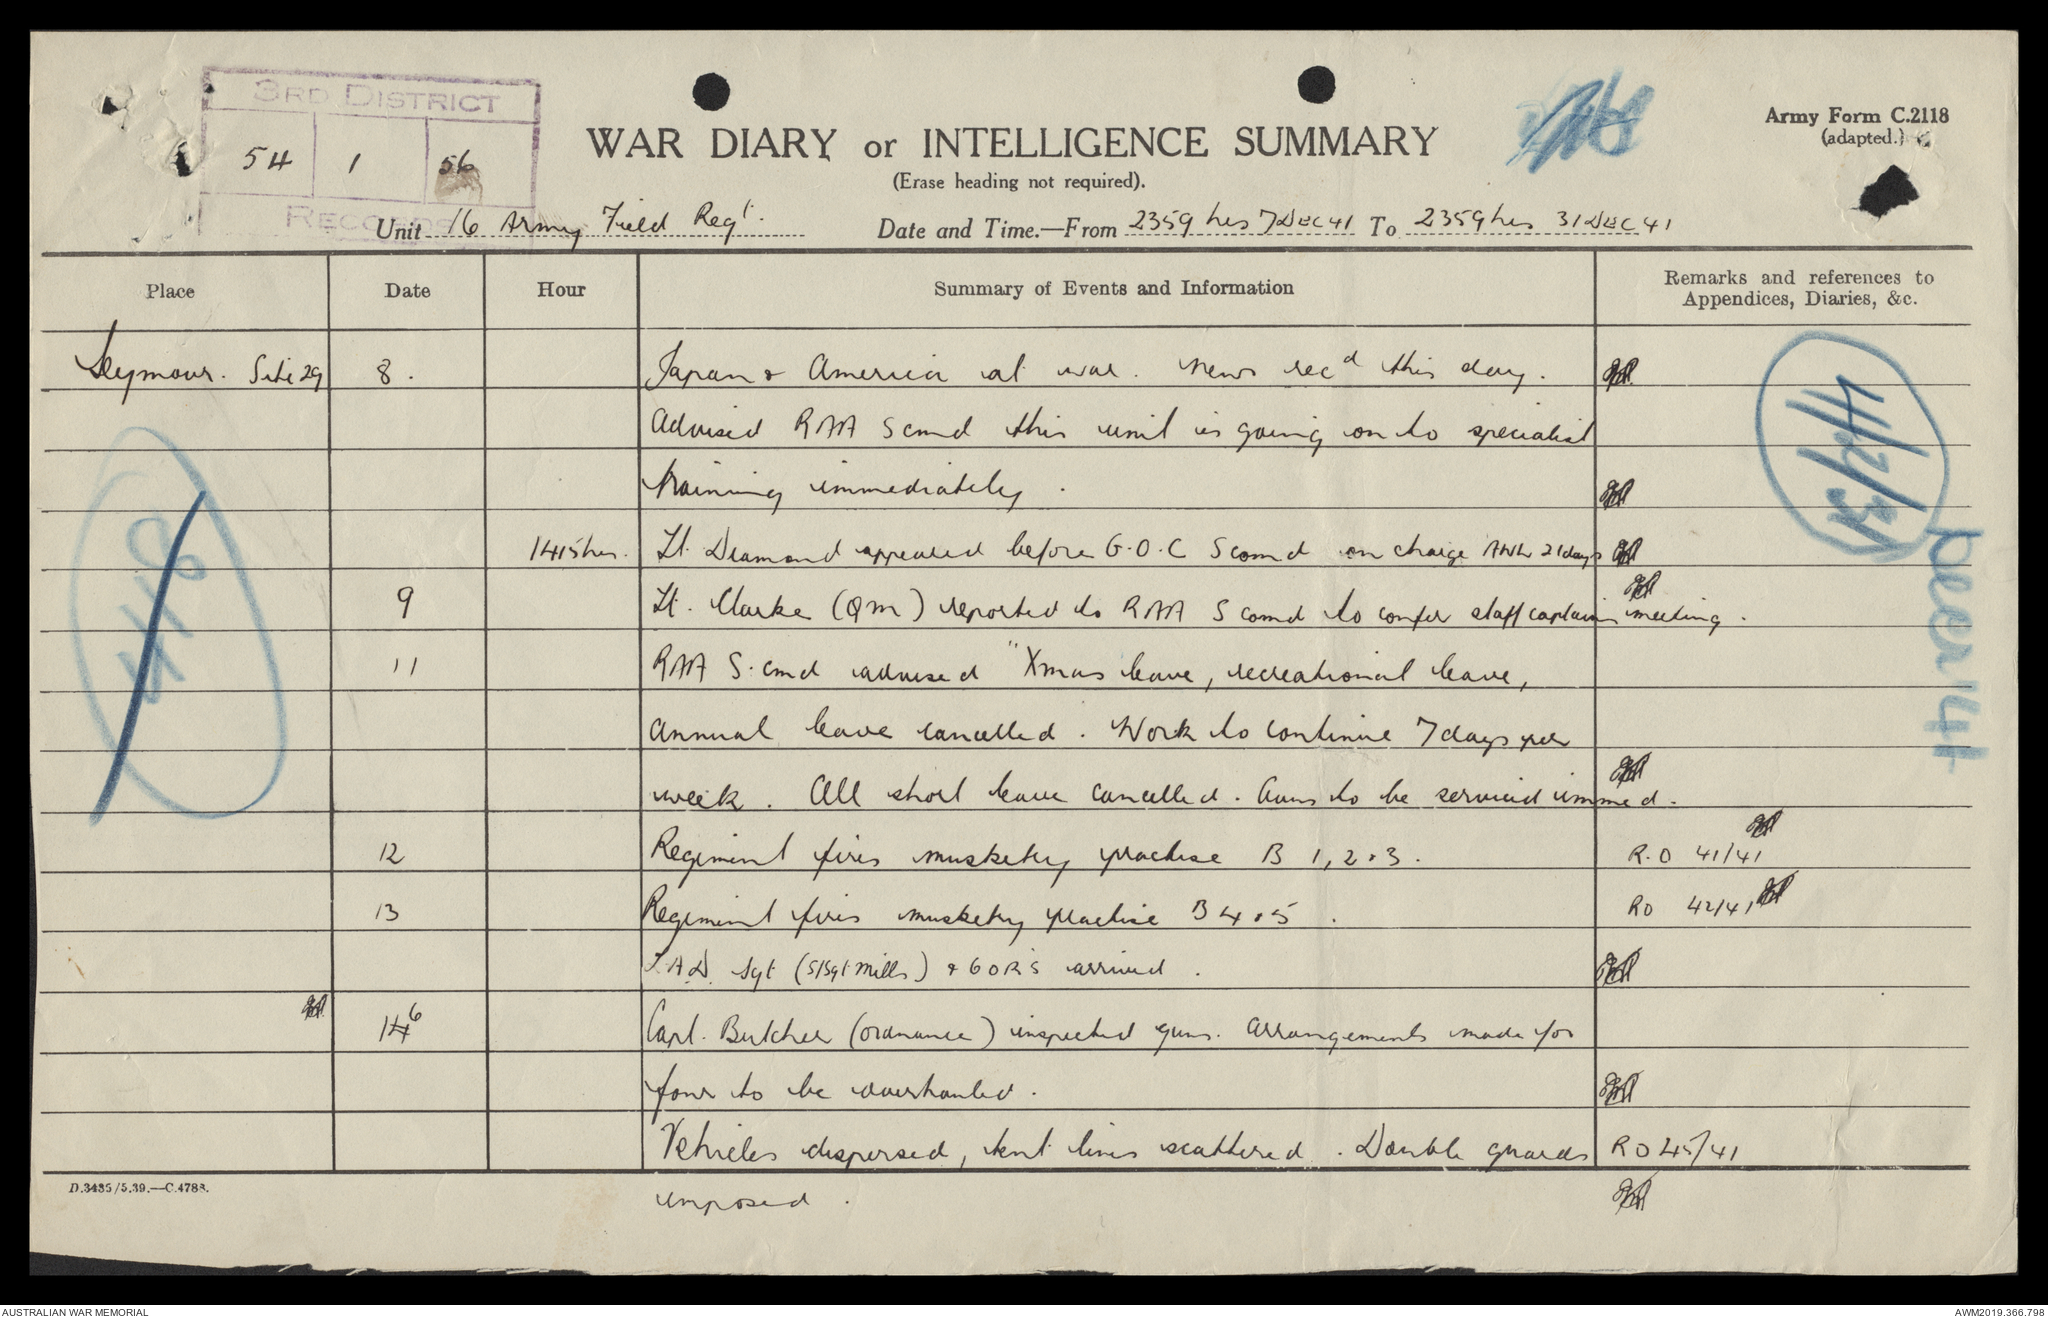 3RD DISTRICT
54 1 56
RECORDS
WAR DIARY or INTELLIGENCE SUMMARY
(Erase heading not required).
Army Form C.2118
(adapted.)
Unit 16 Army Field Regt.
Date and Time.—From 2359 hrs 7DEC41 To 2359hrs 31DEC41
Place Date Hour Summary of Events and Information Remarks and references to
Appendices, Diaries, &c.
Seymour. Site 29 8. Japan & America at war. News recd this day.
Advised RAA S cmd this unit is going on to specialist
training immediately.
1415hrs. Lt. Diamond appeared before G.O.C S comd on charge AWL 21days
9 Lt. Clarke (QM) reported to RAA S comd to confer staff captains meeting.
11 RAA S.cmd advised "Xmas leave, recreational leave,
annual leave cancelled. Work to continue 7days per
week. All short leave cancelled. Guns to be serviced immed.
12 Regiment fires musketry practise B 1, 2 & 3. R.O 41/41
13 Regiment fires musketry practise B 4 & 5. RO 42/41
L.A.D. Sgt (S/Sgt Mills) & 6 ORS arrived.
146 Capt. Butcher (ordnance) inspected guns. Arrangements made for
four to be overhauled.
Vehicles dispersed, tent lines scattered. Double guards RO 45/41
imposed.
4/2/31
Dec 41
D.3485/5.39.—C.4788.
AUSTRALIAN WAR MEMORIAL
AWM2019.366.798